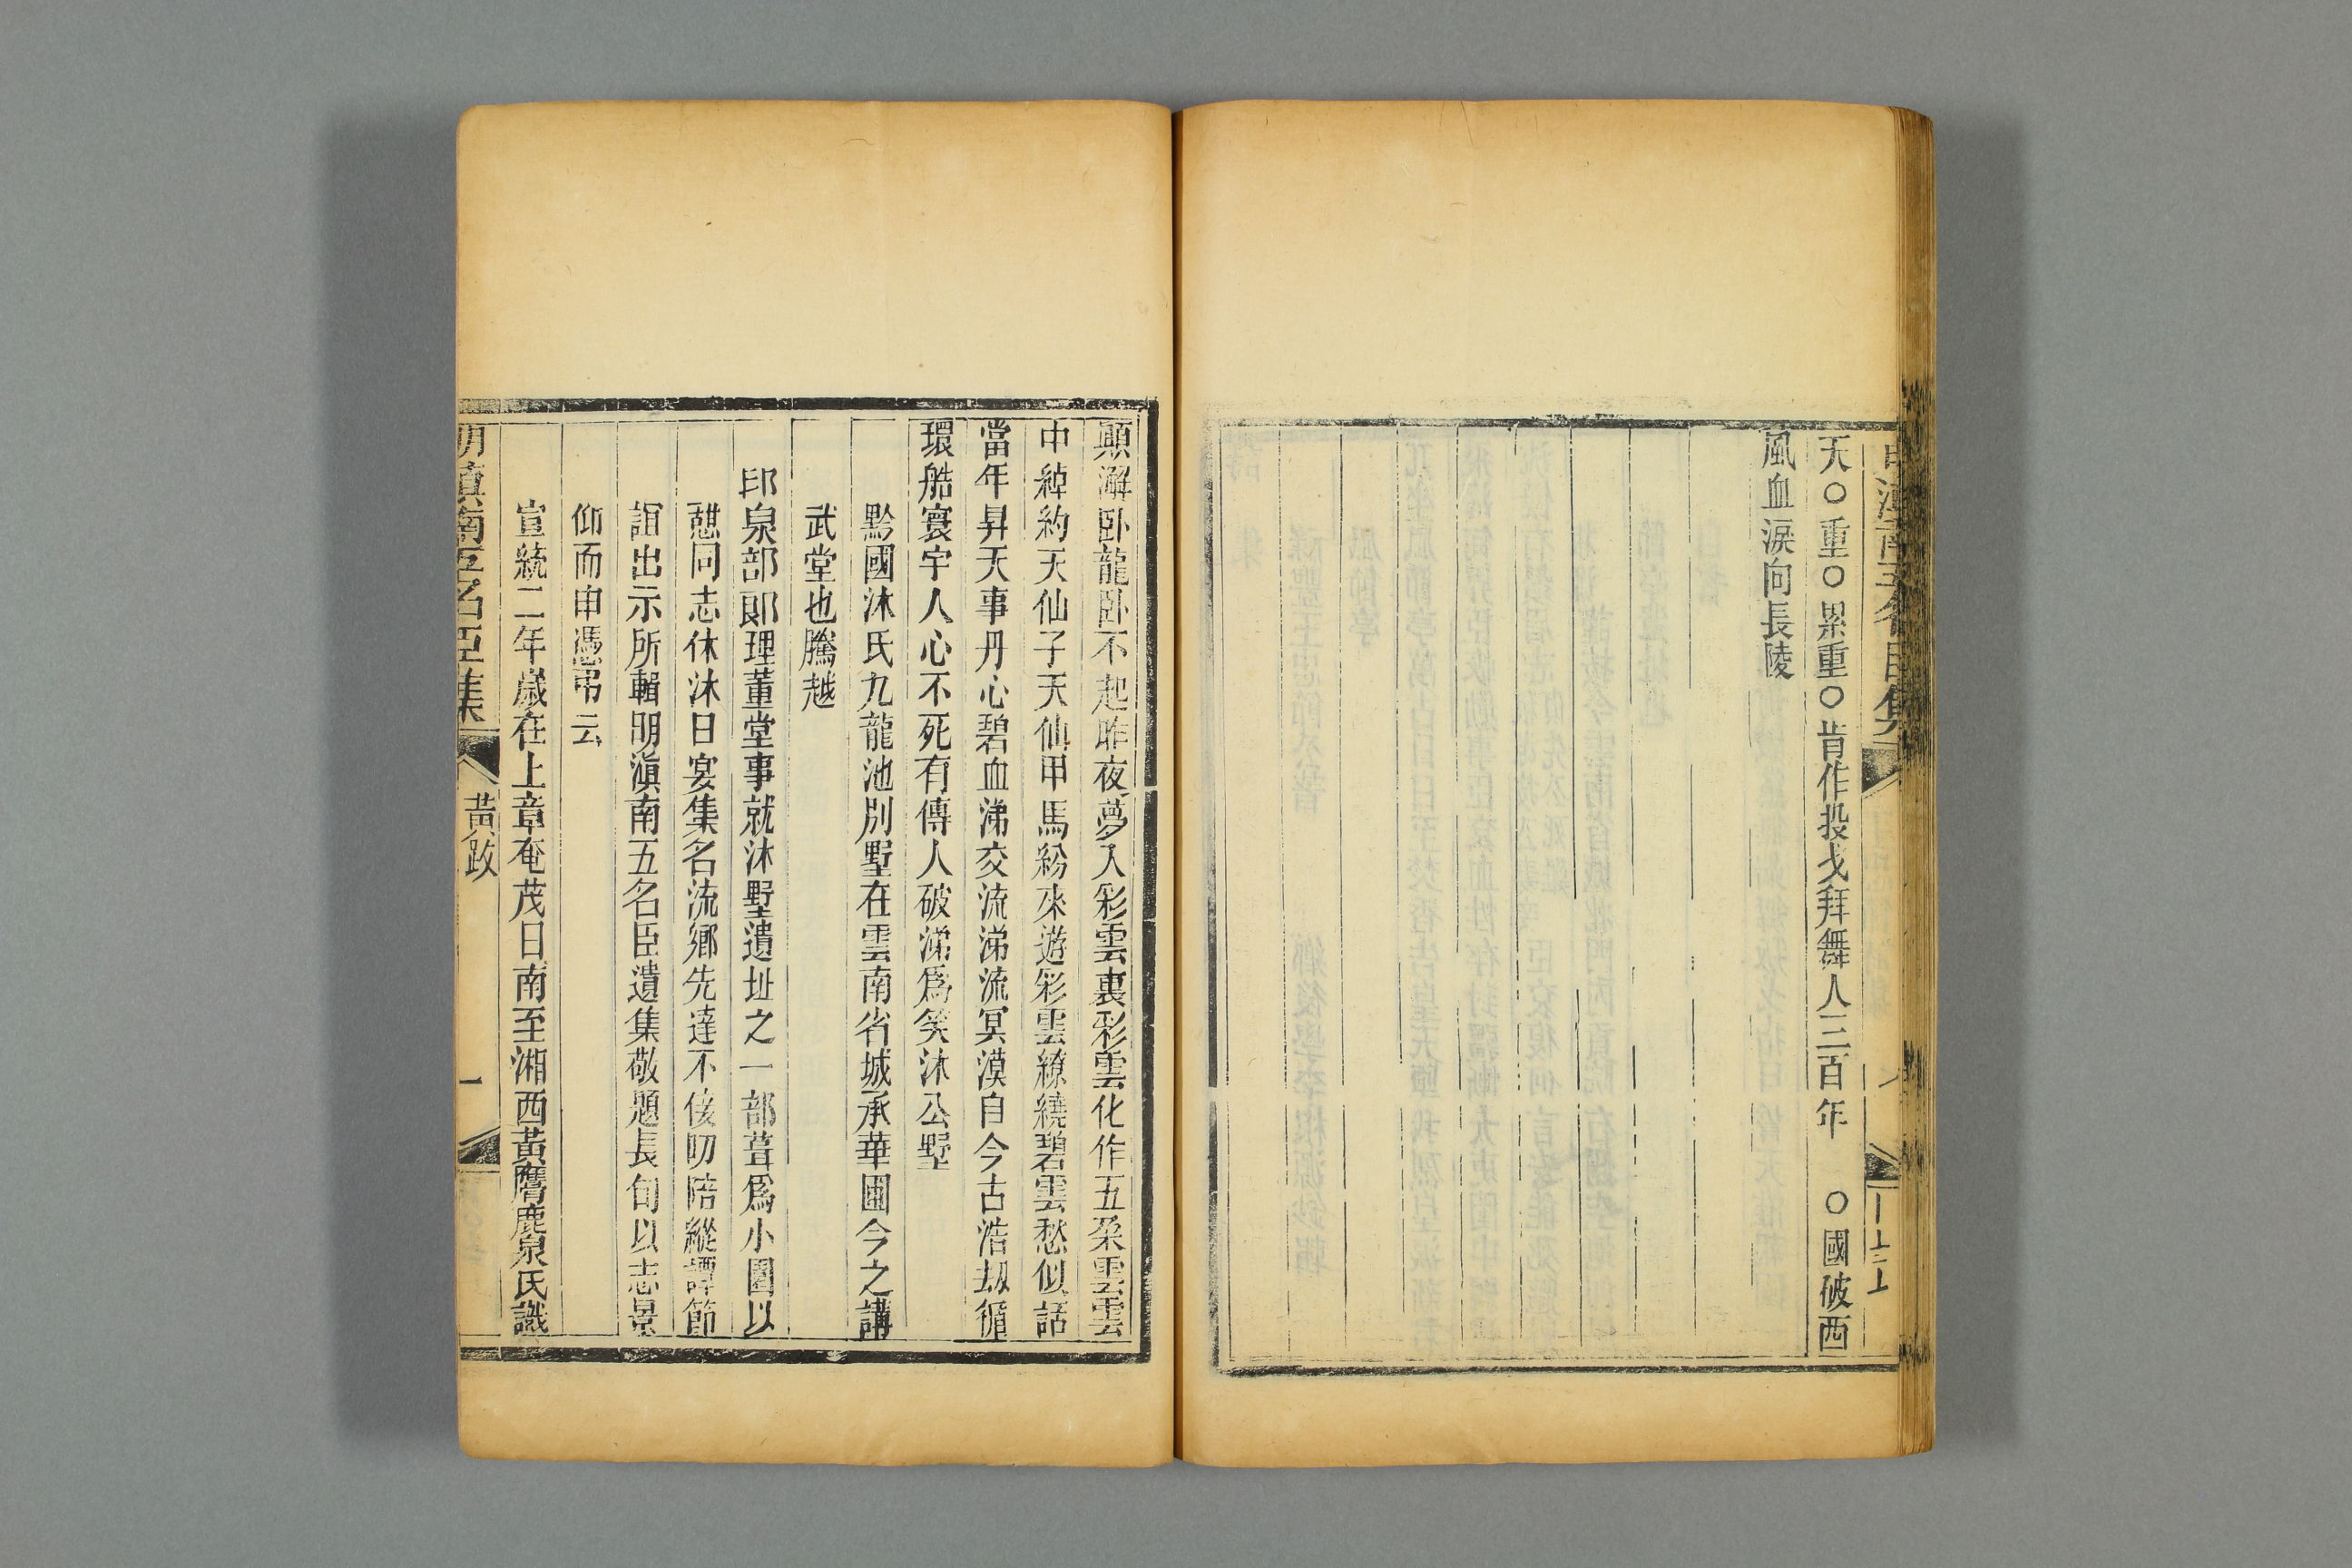 天○重○累重○肯作投戈拜舞人三百年　○國破西
風血淚向長陵
顚澥臥龍臥不起昨夜夢入彩雲裏彩雲化作五朶雲雲
中綽約天仙子天仙甲馬紛來遊彩雲繚繞碧雲愁似話
當年昇天事丹心碧血涕交流涕流冥漠自今古浩刼循
環酷寰宇人心不死有傳人破涕爲笑沐公墅
黔國沐氏九龍池別墅在雲南省城承華圃今之講
武堂也騰越
印泉部郎理董堂事就沐墅遺址之一部葺爲小園以
憇同志休沐日宴集名流鄉先達不佞叨陪縱譚節
誼出示所輯明滇南五名臣遺集敬題長句以志景
仰而申憑弔云
宣統二年歲在上章奄茂日南至湘西黃膺鹿泉氏識
明滇南五名臣集
黃跋
一